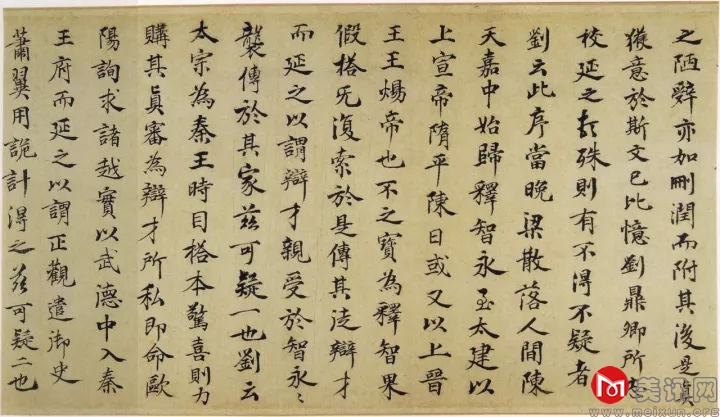 之陋辭亦如刪潤而附其後是真
獲意於斯文已比憶劉鼎卿所
校延之殊則有不得不疑者
劉云此序當晚梁散落人間陳
天嘉中始歸釋智永至太建以
上宣帝隋平陳日或又以上晉
王王煬帝也不之寶為釋智果
假榻旡復索於是傳其徒辯才
而延之以謂辯才親受於智永〻
襲傳於其家茲可疑一也劉云
太宗為秦王時目榻本驚喜則力
購其真審為辯才所私即命歐
陽詢求諸越實以武德中入秦
王府而延之以謂正觀遣御史
蕭翼用詭計得之茲可疑二也
美讯网
www.meixun.org